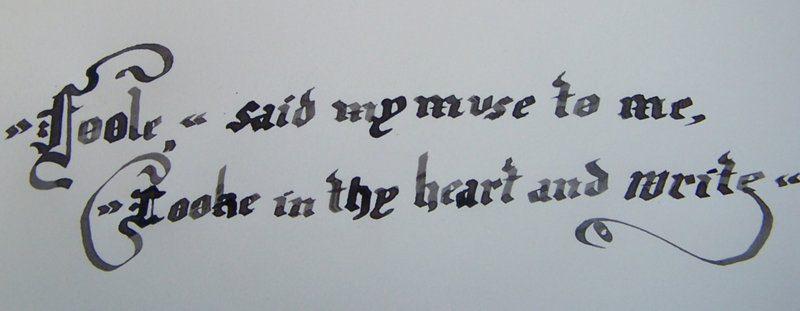 "Foole," said my muse to me,
"Looke in thy heart and write"